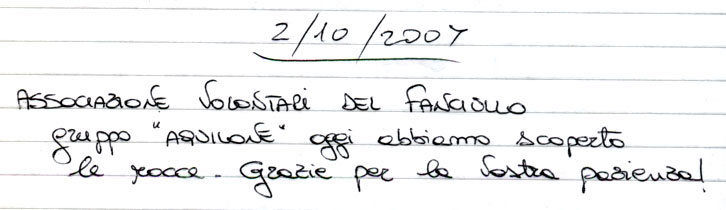 2/10/2007
ASSOCIAZIONE VOLONTARI DEL FANCIULLO
gruppo "AQUILONE" oggi abbiamo scoperto
le rocce. Grazie per la vostra pazienza!